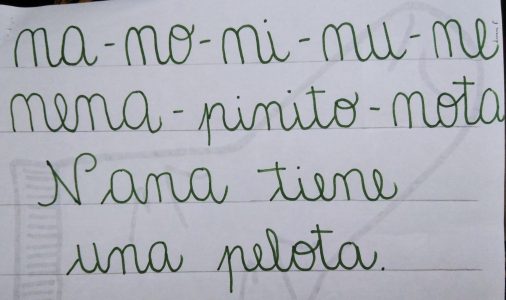 na - no - ni - nu - ne
nena - pinito - nota
Nana tiene
una pelota.